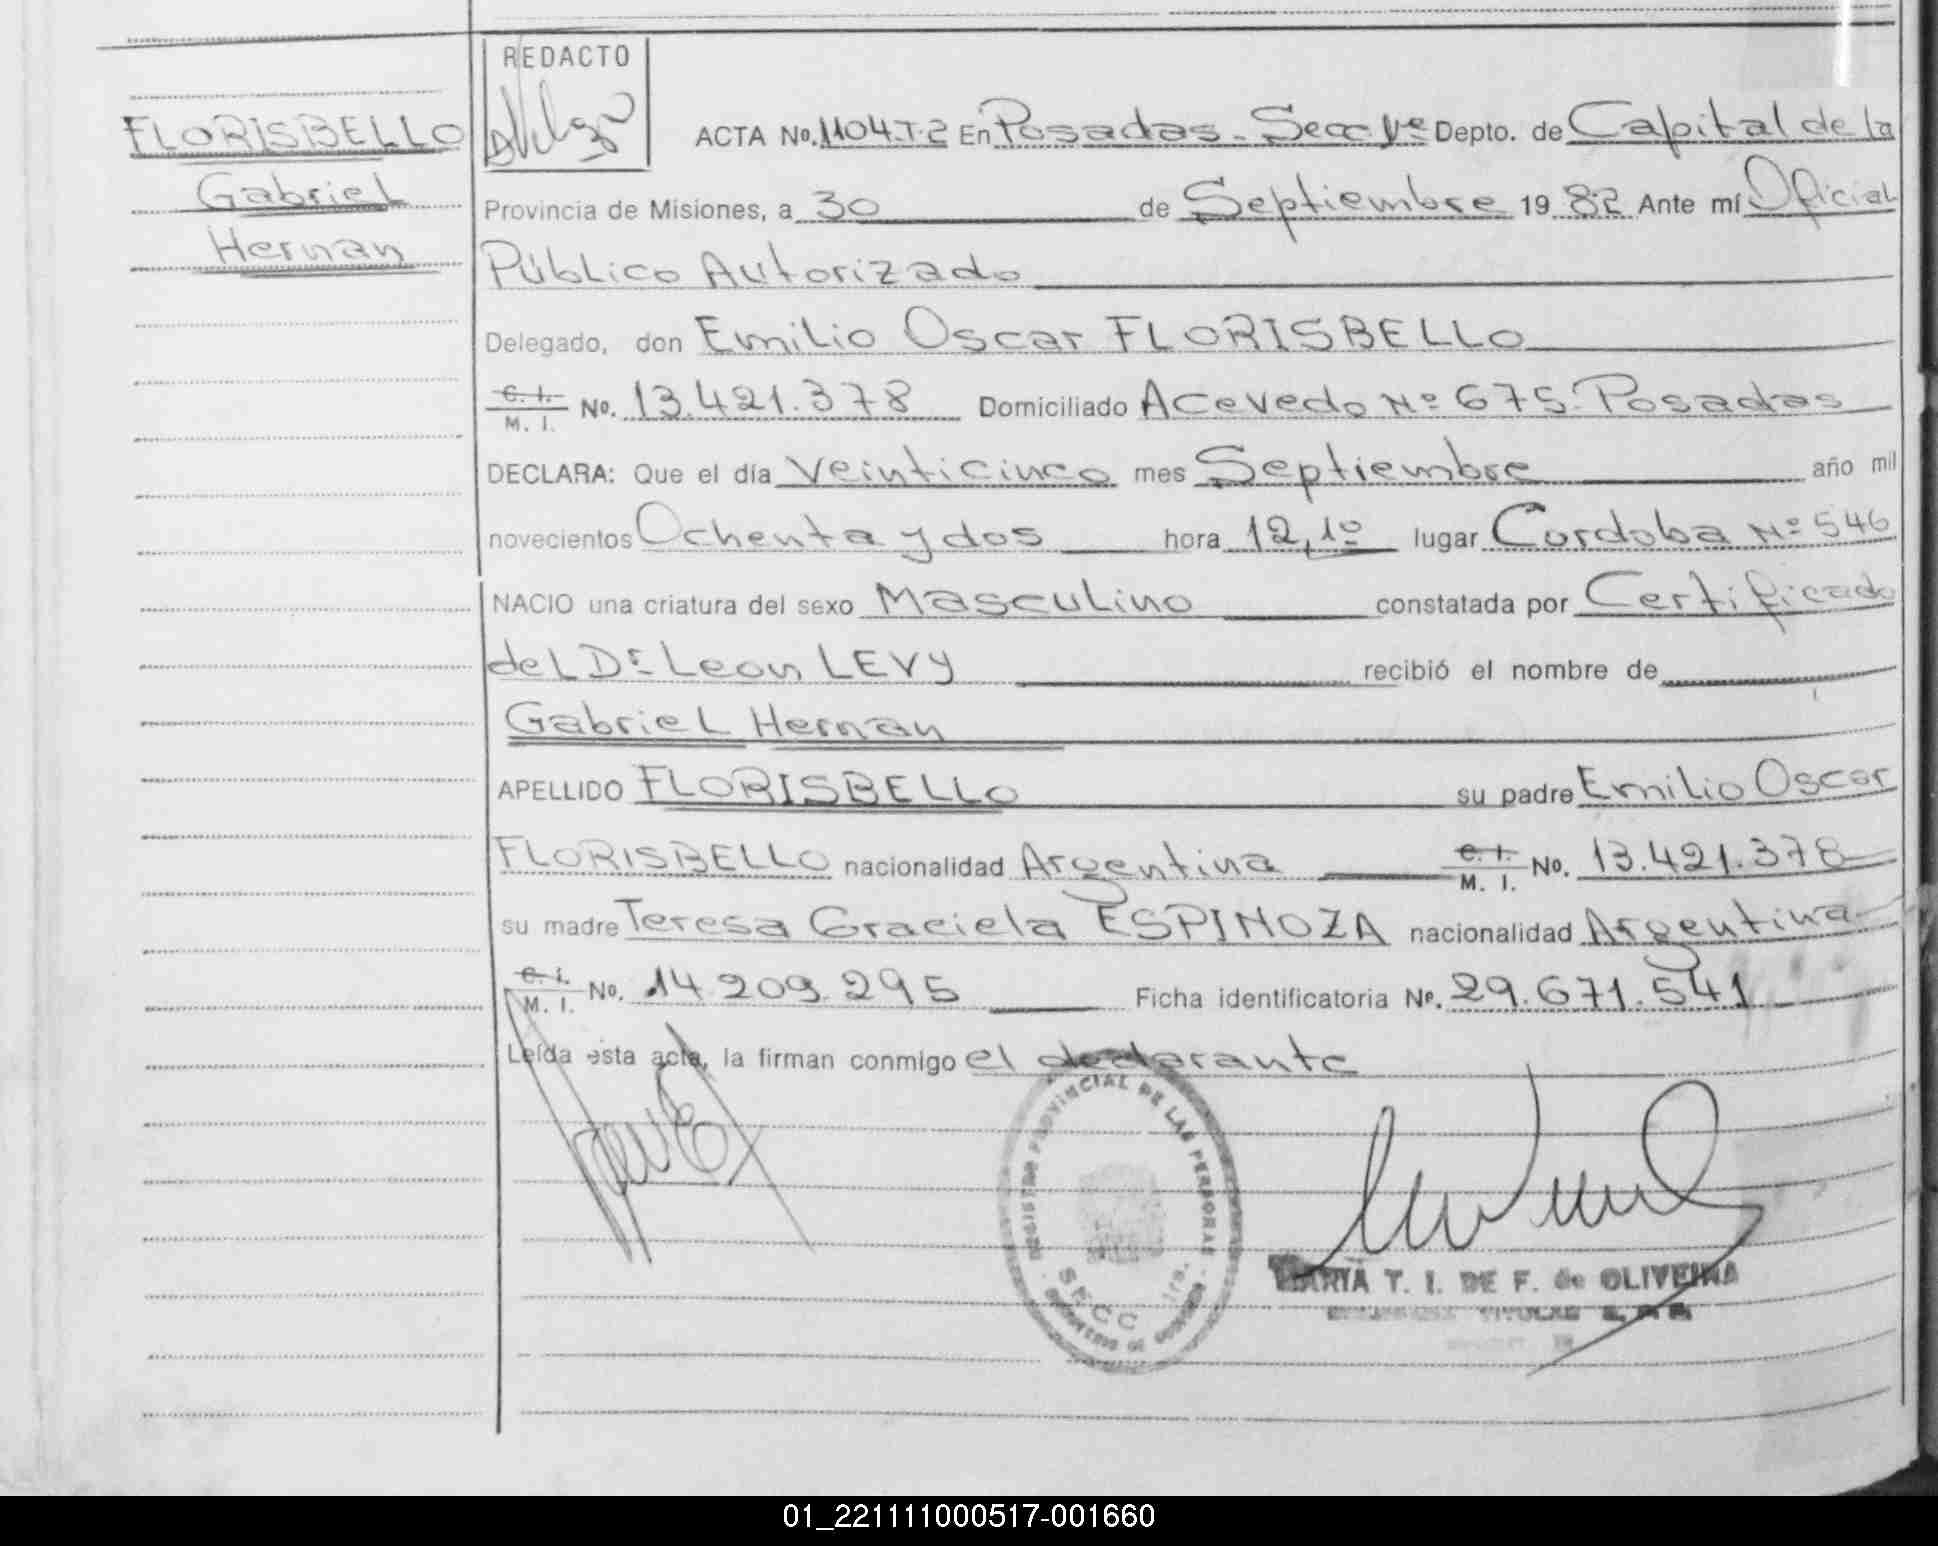 FLORISBELLO
Gabriel
Hernan
REDACTO
ACTA No. 1104.T.2 En Posadas - Secc 1ª Depto. de Capital de la
Provincia de Misiones, a 30 de Septiembre 19 82 Ante mí Oficial
Público Autorizado
Delegado, don Emilio Oscar FLORISBELLO
C. I. / M. I. No. 13.421.378 Domiciliado Acevedo Nº 675. Posadas
DECLARA: Que el día veinticinco mes Septiembre año mil
novecientos Ochenta y dos hora 12,10 lugar Cordoba Nº 546
NACIO una criatura del sexo Masculino constatada por Certificado
del Dr Leon LEVY recibió el nombre de
Gabriel Hernan
APELLIDO FLORISBELLO su padre Emilio Oscar
FLORISBELLO nacionalidad Argentina C. I. / M. I. No. 13.421.378
su madre Teresa Graciela ESPINOZA nacionalidad Argentina
C. I. / M. I. No. 14.209.295 Ficha identificatoria Nº. 29.671.541
Leída esta acta, la firman conmigo el declarante
REGISTRO PROVINCIAL DE LAS PERSONAS
SECC 1ra.
MARIA T. I. DE F. de OLIVEIRA
TITULAR
01_221111000517-001660